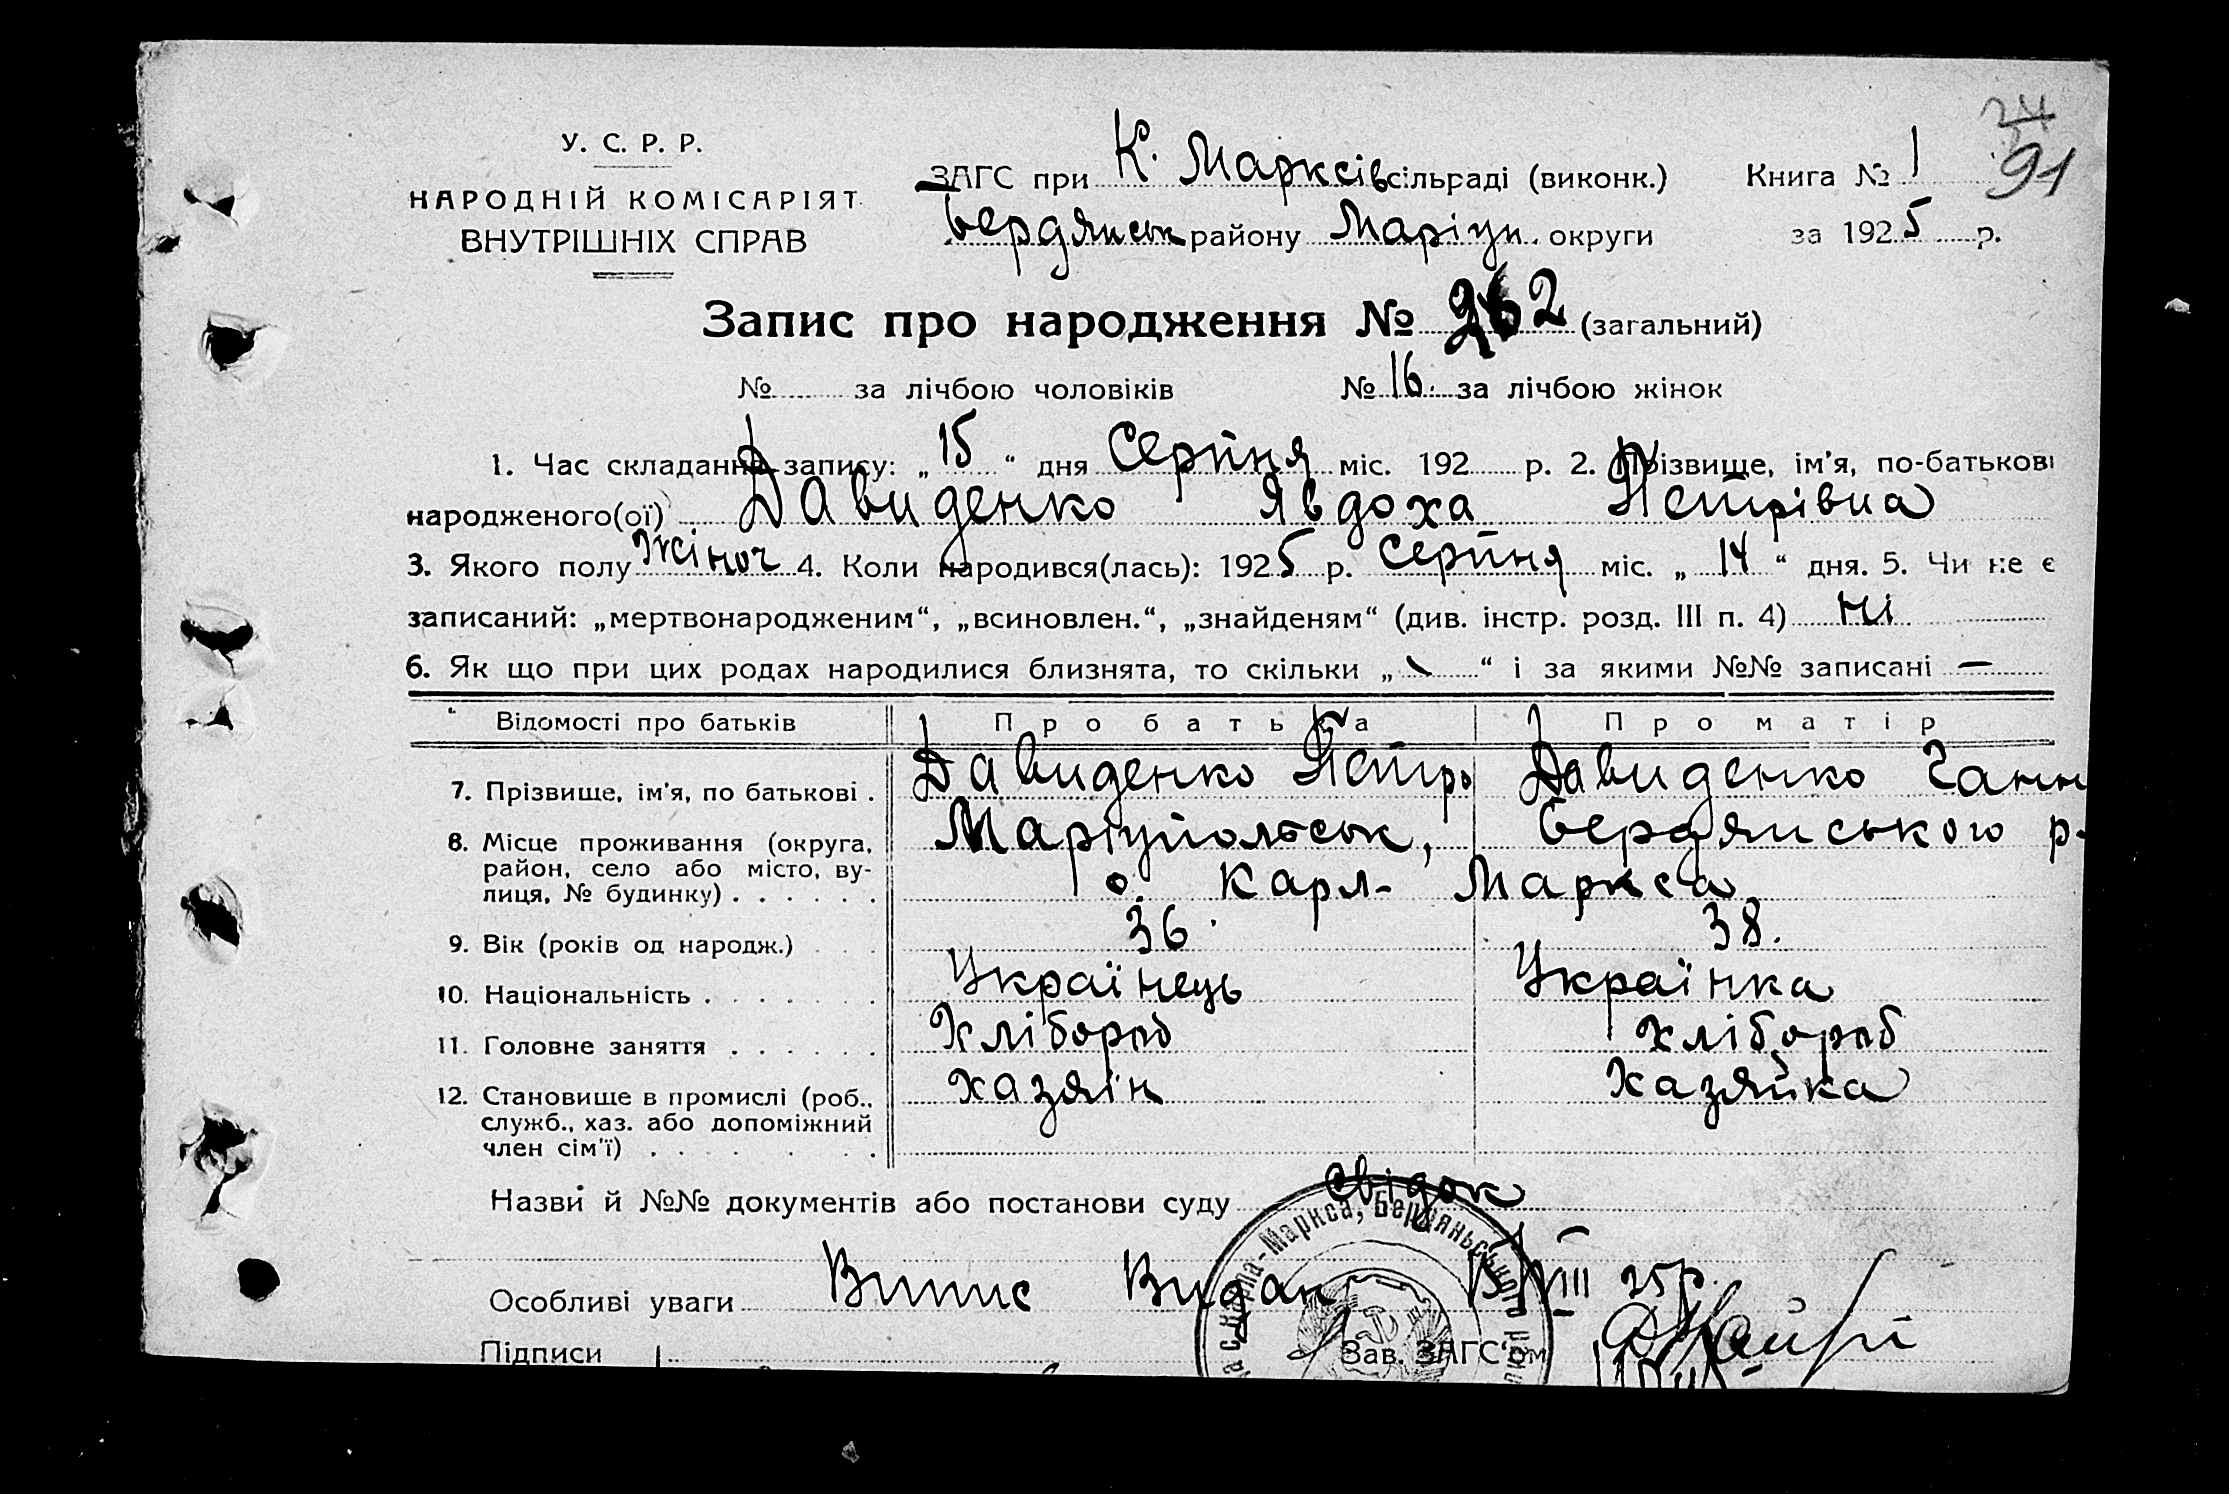 24
91
У. С. Р. Р.
НАРОДНІЙ КОМІСАРІЯТ
ВНУТРІШНІХ СПРАВ
ЗАГС при К. Марксів сільраді (виконк.) Книга № 1
Бердянськ району Маріуп. округи за 1925 р.
Запис про народження № 262 (загальний)
№ за лічбою чоловіків № 16. за лічбою жінок
1. Час складання запису: „ 15 “ дня Серпня міс. 192 р. 2. Прізвище, ім'я, по-батькові
народженого(ої) Давиденко Явдоха Петрівна
3. Якого полу Жіноч 4. Коли народився(лась): 1925 р. Серпня міс. „ 14 “ дня. 5. Чи не є
записаний: „мертвонародженим“, „всиновлен.“, „знайденям“ (див. інстр. розд. III п. 4) ні
6. Як що при цих родах народилися близнята, то скільки „ “ і за якими №№ записані —
Відомості про батьків Про батька Про матір
7. Прізвище, ім'я, по батькові . Давиденко Петро Давиденко Ганн
8. Місце проживання (округа, район, село або місто, вулиця, № будинку) . . . . . . Маріупольськ, Бердянського р.
Карл- Маркса
9. Вік (років од народж.) . . . 36. 38.
10. Національність . . . . . . . Українець Українка
11. Головне заняття . . . . . . Хлібороб хлібороб
12. Становище в промислі (роб., служб., хаз. або допоміжний член сім'ї) . . . . . . . хазяїн хазяйка
Назви й №№ документів або постанови суду свідок
Особливі уваги Випис Видан 15/VIII 25р.
Підписи Зав. ЗАГС'ом
Карла-Маркса, Бердяньського